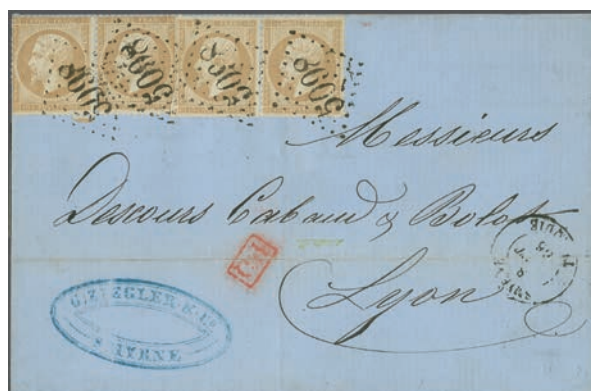 5098 5098 5098 5098
Messieurs
Descours Cabaud & Bolot
Lyon
PD
G. ZIEGLER & Co
SMYRNE